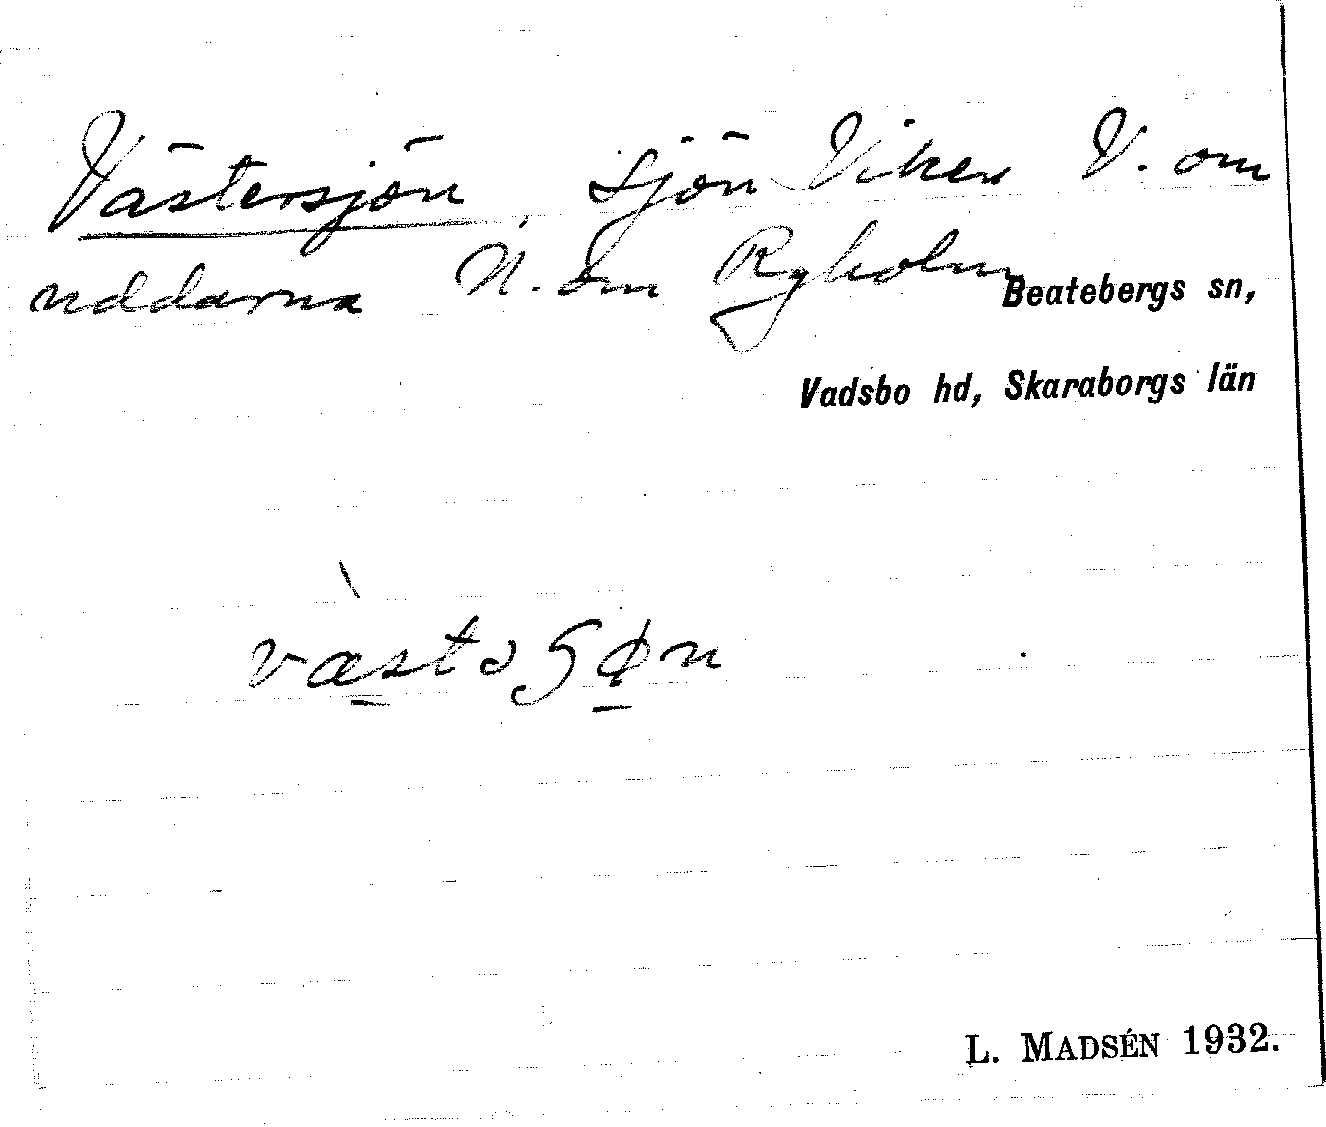 Västersjön, sjön Viken V. om
uddarna N. om Ryholm
Beatebergs sn,
Vadsbo hd, Skaraborgs län
L. MADSÉN 1932.